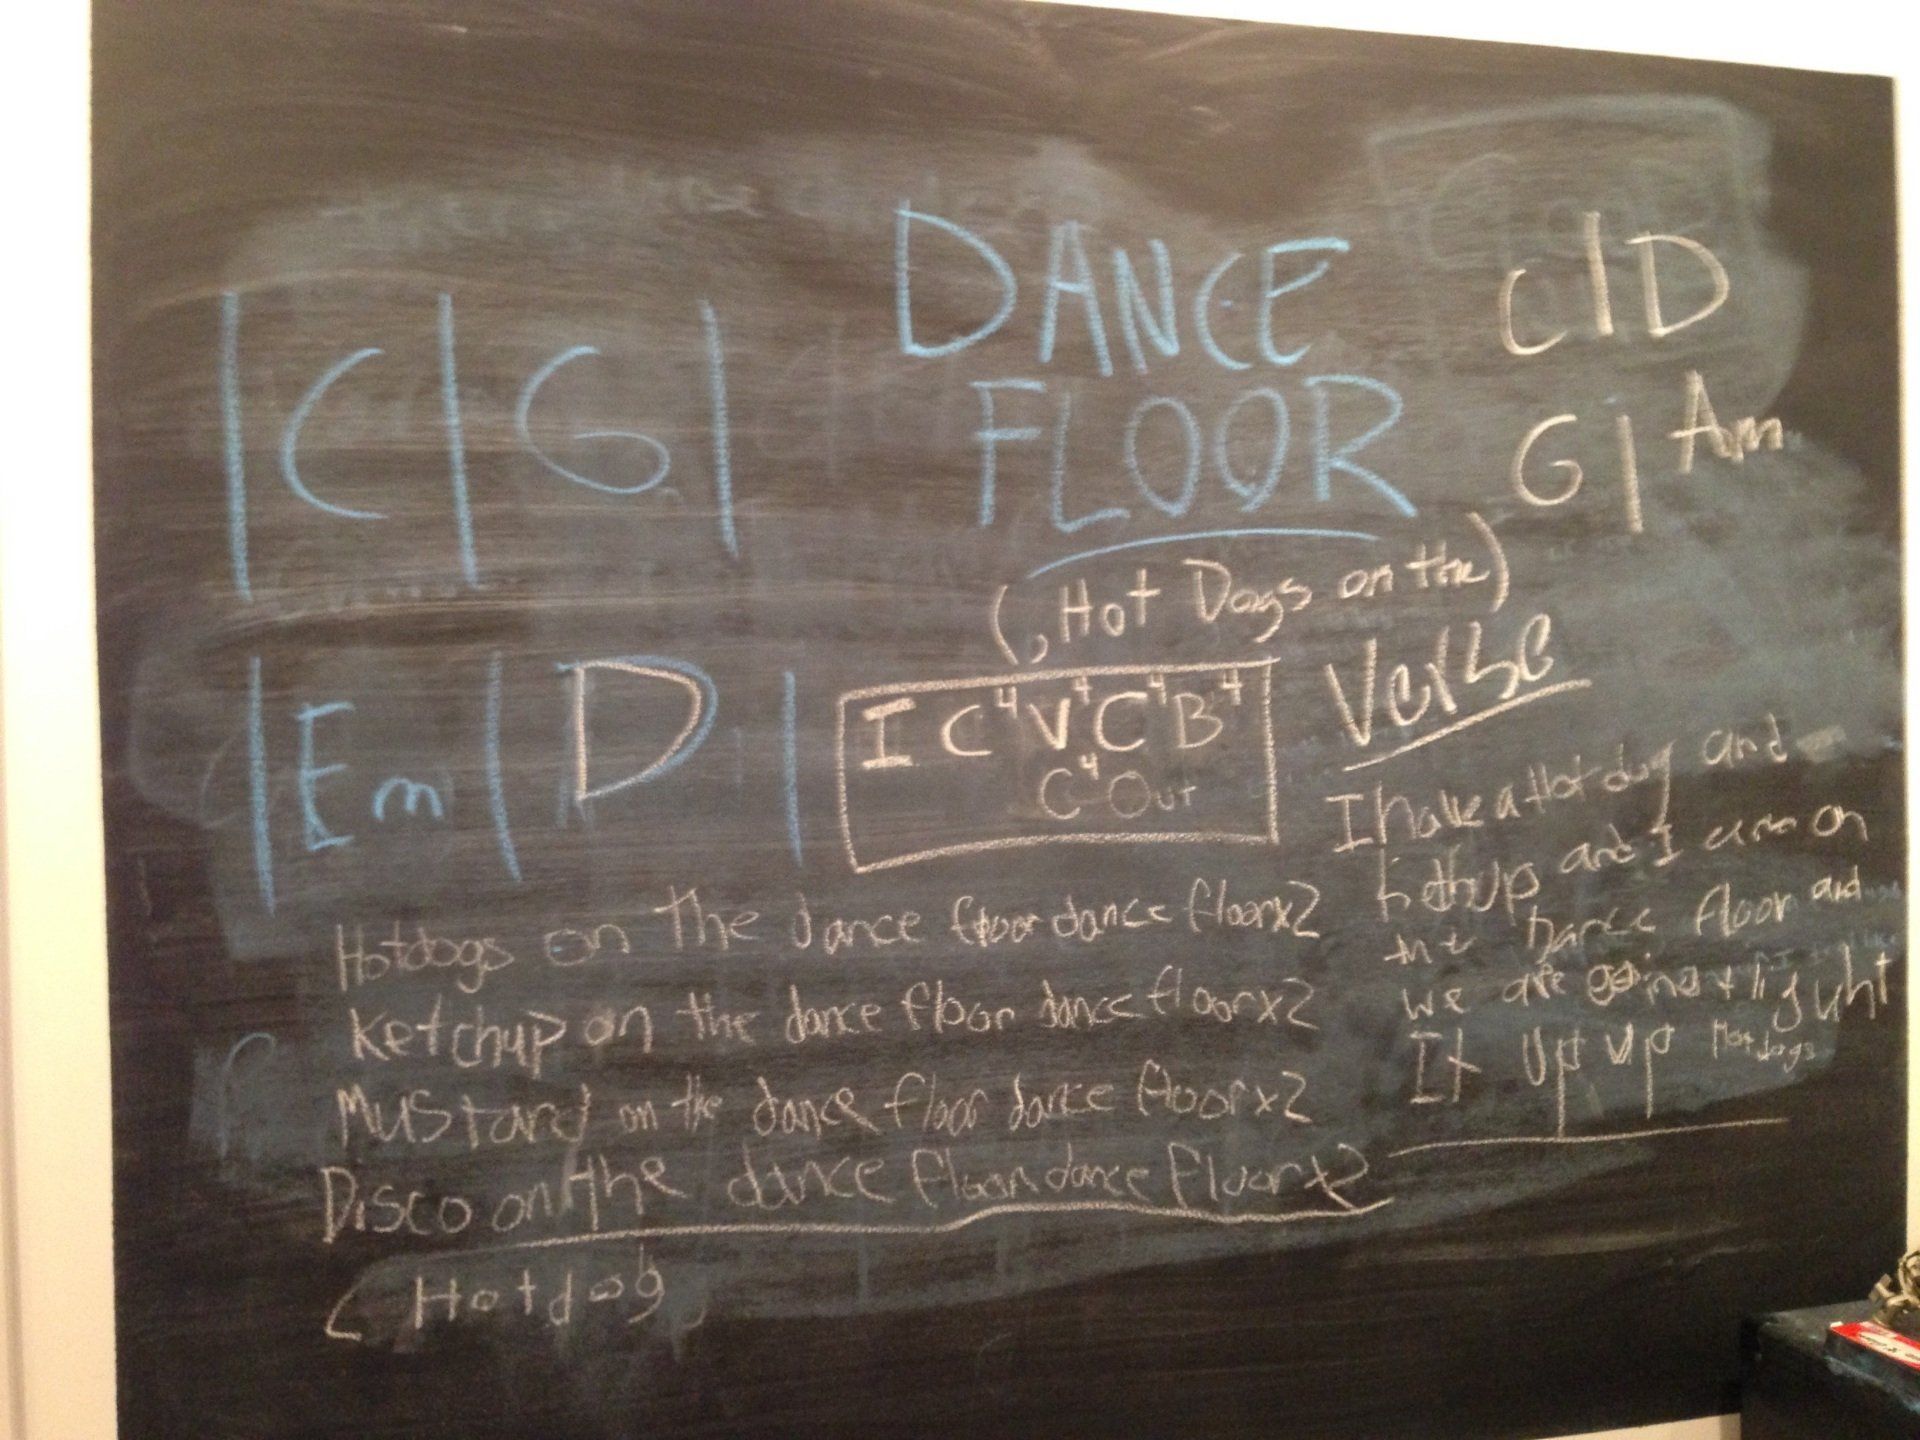 DANCE
FLOOR
(, Hot Dogs on the)
| C | G |
| Em | D |
C | D
G | Am
I C⁴ V⁴ C⁴ B⁴
C⁴ Out
Hotdogs on The dance floor dance floor x2
Ketchup on the dance floor dance floor x2
Mustard on the dance floor dance floor x2
Disco on the dance floor dance floor x2
Hotdog
Verse
I have a Hot dog and
kethup and I am on
the Dance floor and
we are going t lighuht
It up up Hot dogs